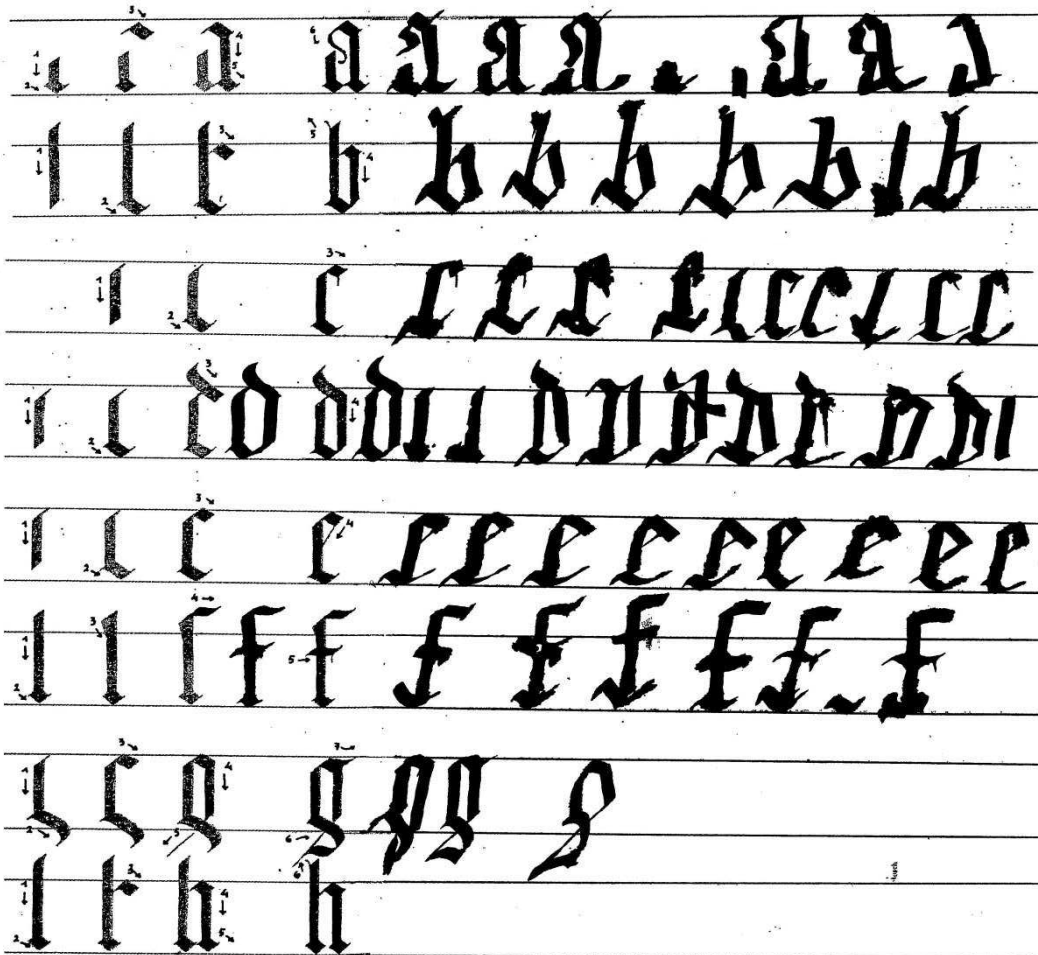 a a a a a a
b b b b b b b
c c c c c c c c c
d d d d d d d d d d
e e e e e e e e e e
f f f f f f f f
g g g g
h